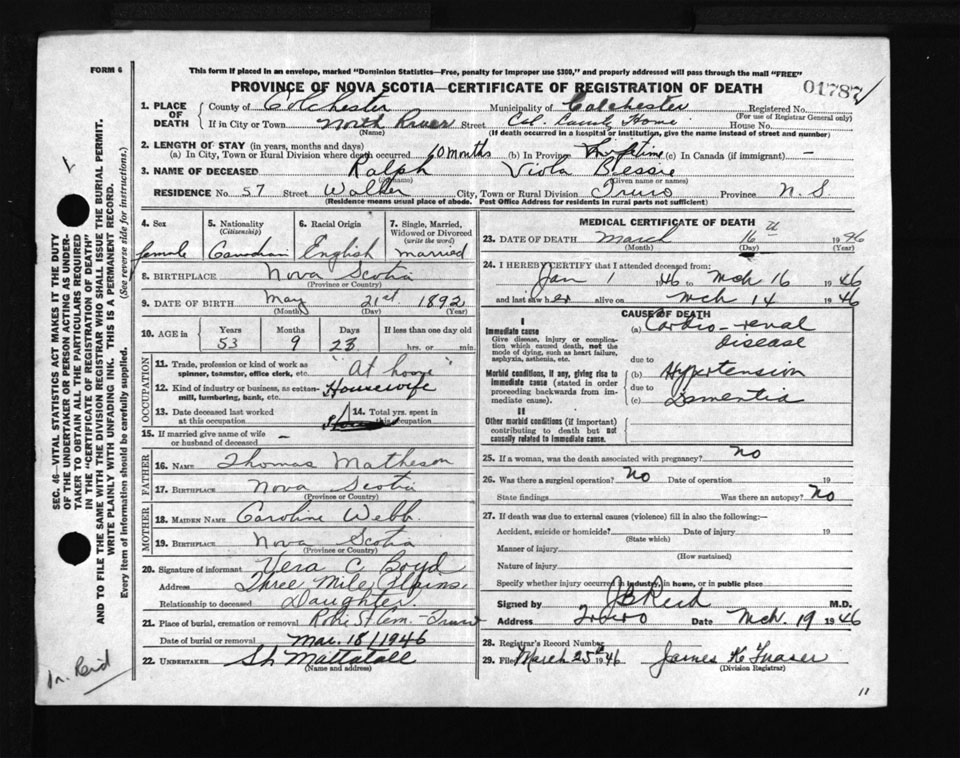 FORM 6
This form if placed in an envelope, marked "Dominion Statistics—Free, penalty for improper use $300," and properly addressed will pass through the mail "FREE"
PROVINCE OF NOVA SCOTIA—CERTIFICATE OF REGISTRATION OF DEATH
01787
1. PLACE OF DEATH
County of Colchester Municipality of Colchester Registered No.
(For use of Registrar General only)
If in City or Town North River Street Col. County Home House No.
(Name) (If death occurred in a hospital or institution, give the name instead of street and number)
2. LENGTH OF STAY (in years, months and days)
(a) In City, Town or Rural Division where death occurred 10 months (b) In Province Lifetime (c) In Canada (if immigrant) —
3. NAME OF DECEASED Ralph Viola Bessie
(Surname) (Given name or names)
RESIDENCE No. 57 Street Walker City, Town or Rural Division Truro Province N.S
(Residence means usual place of abode. Post Office Address for residents in rural parts not sufficient)
4. Sex
female
5. Nationality
(Citizenship)
Canadian
6. Racial Origin
English
7. Single, Married, Widowed or Divorced
(write the word)
married
8. BIRTHPLACE Nova Scotia
(Province or Country)
9. DATE OF BIRTH May 21st 1892
(Month) (Day) (Year)
10. AGE in
Years Months Days If less than one day old
53 9 23 hrs. or min.
OCCUPATION
11. Trade, profession or kind of work as spinner, teamster, office clerk, etc. "At home"
12. Kind of industry or business, as cotton-mill, lumbering, bank, etc. Housewife
13. Date deceased last worked at this occupation
14. Total yrs. spent in this occupation
15. If married give name of wife or husband of deceased —
FATHER
16. NAME Thomas Matheson
17. BIRTHPLACE Nova Scotia
(Province or Country)
MOTHER
18. MAIDEN NAME Caroline Webb
19. BIRTHPLACE Nova Scotia
(Province or Country)
20. Signature of informant Vera C Boyd
Address Three Mile Plains
Relationship to deceased Daughter.
21. Place of burial, cremation or removal Robie St Cem. - Truro
Date of burial or removal Mar. 18/1946
22. UNDERTAKER Mattatall
(Name and address)
MEDICAL CERTIFICATE OF DEATH
23. DATE OF DEATH March 16th 1946
(Month) (Day) (Year)
24. I HEREBY CERTIFY that I attended deceased from:
Jan 1 1946 to Mch 16 1946
and last saw her alive on Mch 14 1946
CAUSE OF DEATH
I
Immediate cause
Give disease, injury or complication which caused death, not the mode of dying, such as heart failure, asphyxia, asthenia, etc.
(a) Cardio-renal disease
due to
Morbid conditions, if any, giving rise to immediate cause (stated in order proceeding backwards from immediate cause).
(b) Hypertension
due to
(c) Dementia
II
Other morbid conditions (if important) contributing to death but not causally related to immediate cause.
25. If a woman, was the death associated with pregnancy? no
26. Was there a surgical operation? No Date of operation 19
State findings Was there an autopsy? No
27. If death was due to external causes (violence) fill in also the following:—
Accident, suicide or homicide? Date of injury 19
(State which)
Manner of injury
(How sustained)
Nature of injury
Specify whether injury occurred in industry, in home, or in public place
Signed by JB Reid M.D.
Address Truro Date Mch. 19 1946
28. Registrar's Record Number
29. Filed March 25th 1946 James K Fraser
(Division Registrar)
11
SEC. 46—VITAL STATISTICS ACT MAKES IT THE DUTY
OF THE UNDERTAKER OR PERSON ACTING AS UNDER-
TAKER TO OBTAIN ALL THE PARTICULARS REQUIRED
IN THE "CERTIFICATE OF REGISTRATION OF DEATH"
AND TO FILE THE SAME WITH THE DIVISION REGISTRAR WHO SHALL ISSUE THE BURIAL PERMIT.
WRITE PLAINLY WITH UNFADING INK. THIS IS A PERMANENT RECORD.
Every item of information should be carefully supplied. (See reverse side for instructions.)
Reid